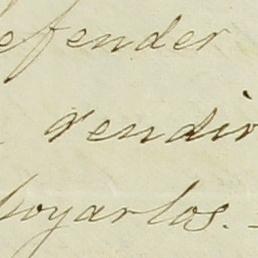 efender
rendir
poyarlos.